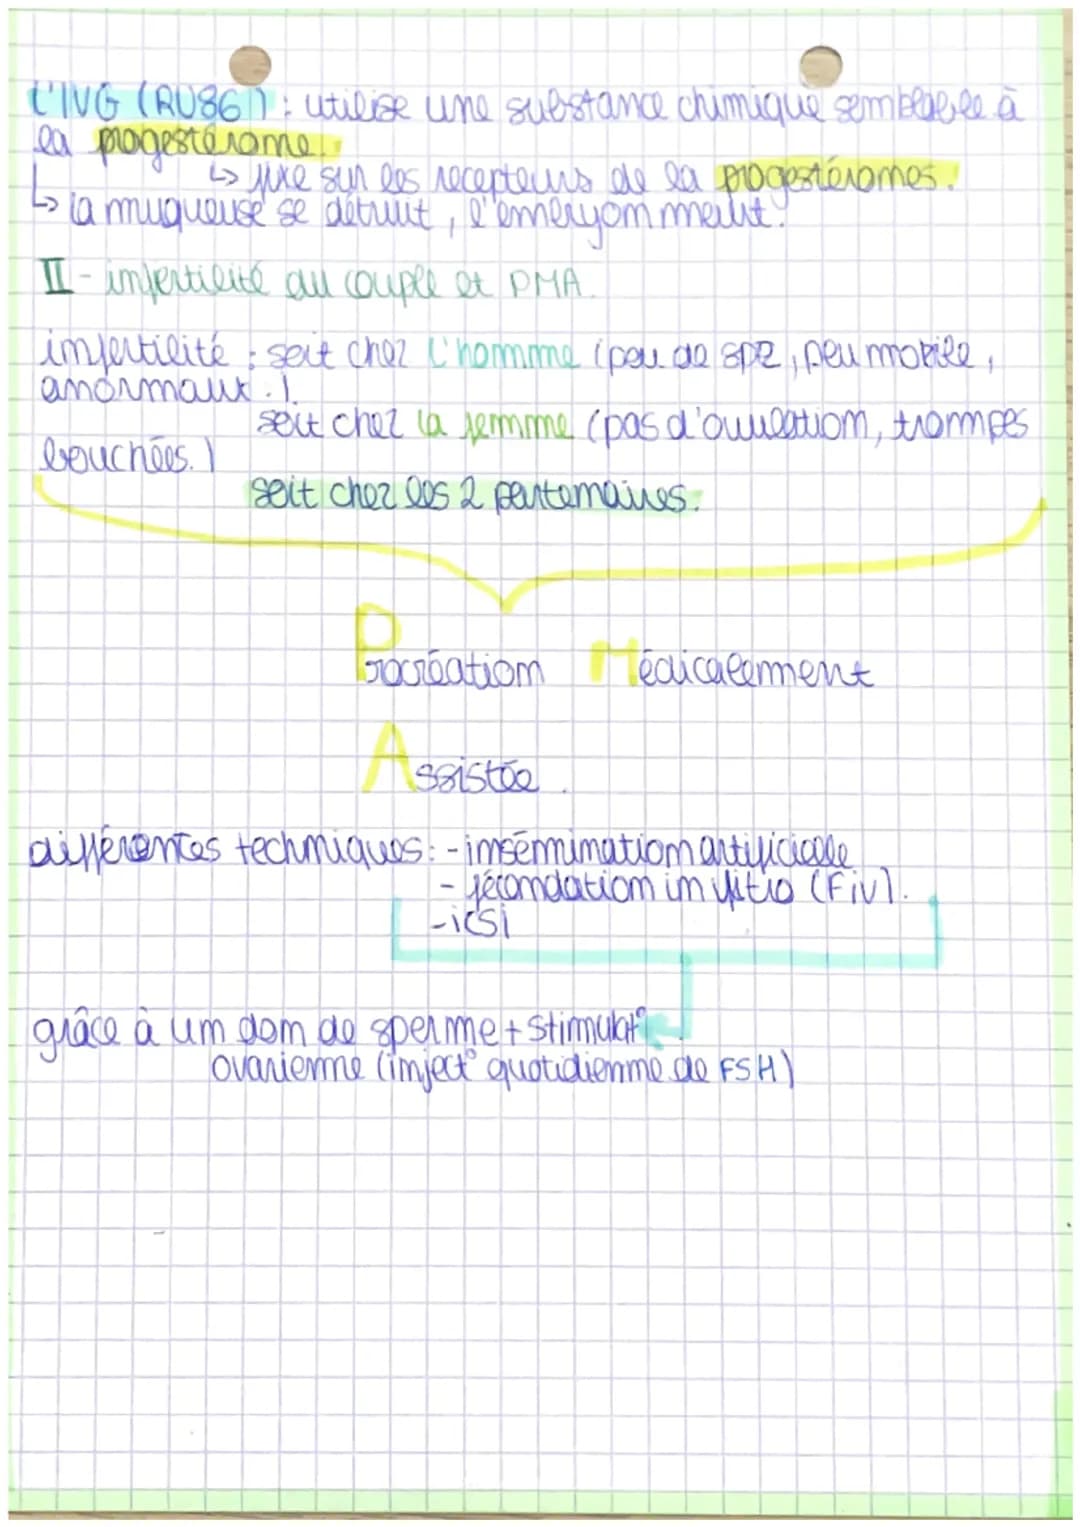 L'IVG (RU861) : utilise une substance chimique semblable à
la progestérone.
↳ fixe sur les recepteurs de la progestérones.
↳ la muqueuse se détruit, l'embryon meurt.
II - infertilité du couple et PMA.
infertilité : soit chez l'homme (peu de spz, peu mobile,
anormaux.).
soit chez la femme (pas d'ovulation, trompes
bouchées.)
soit chez les 2 partenaires.
Procréation Médicalement
Assistée.
différentes techniques : - insémination artificielle
- fécondation in vitro (Fiv).
- icsi
grâce à un don de sperme + stimulat°
ovarienne (inject° quotidienne de FSH)